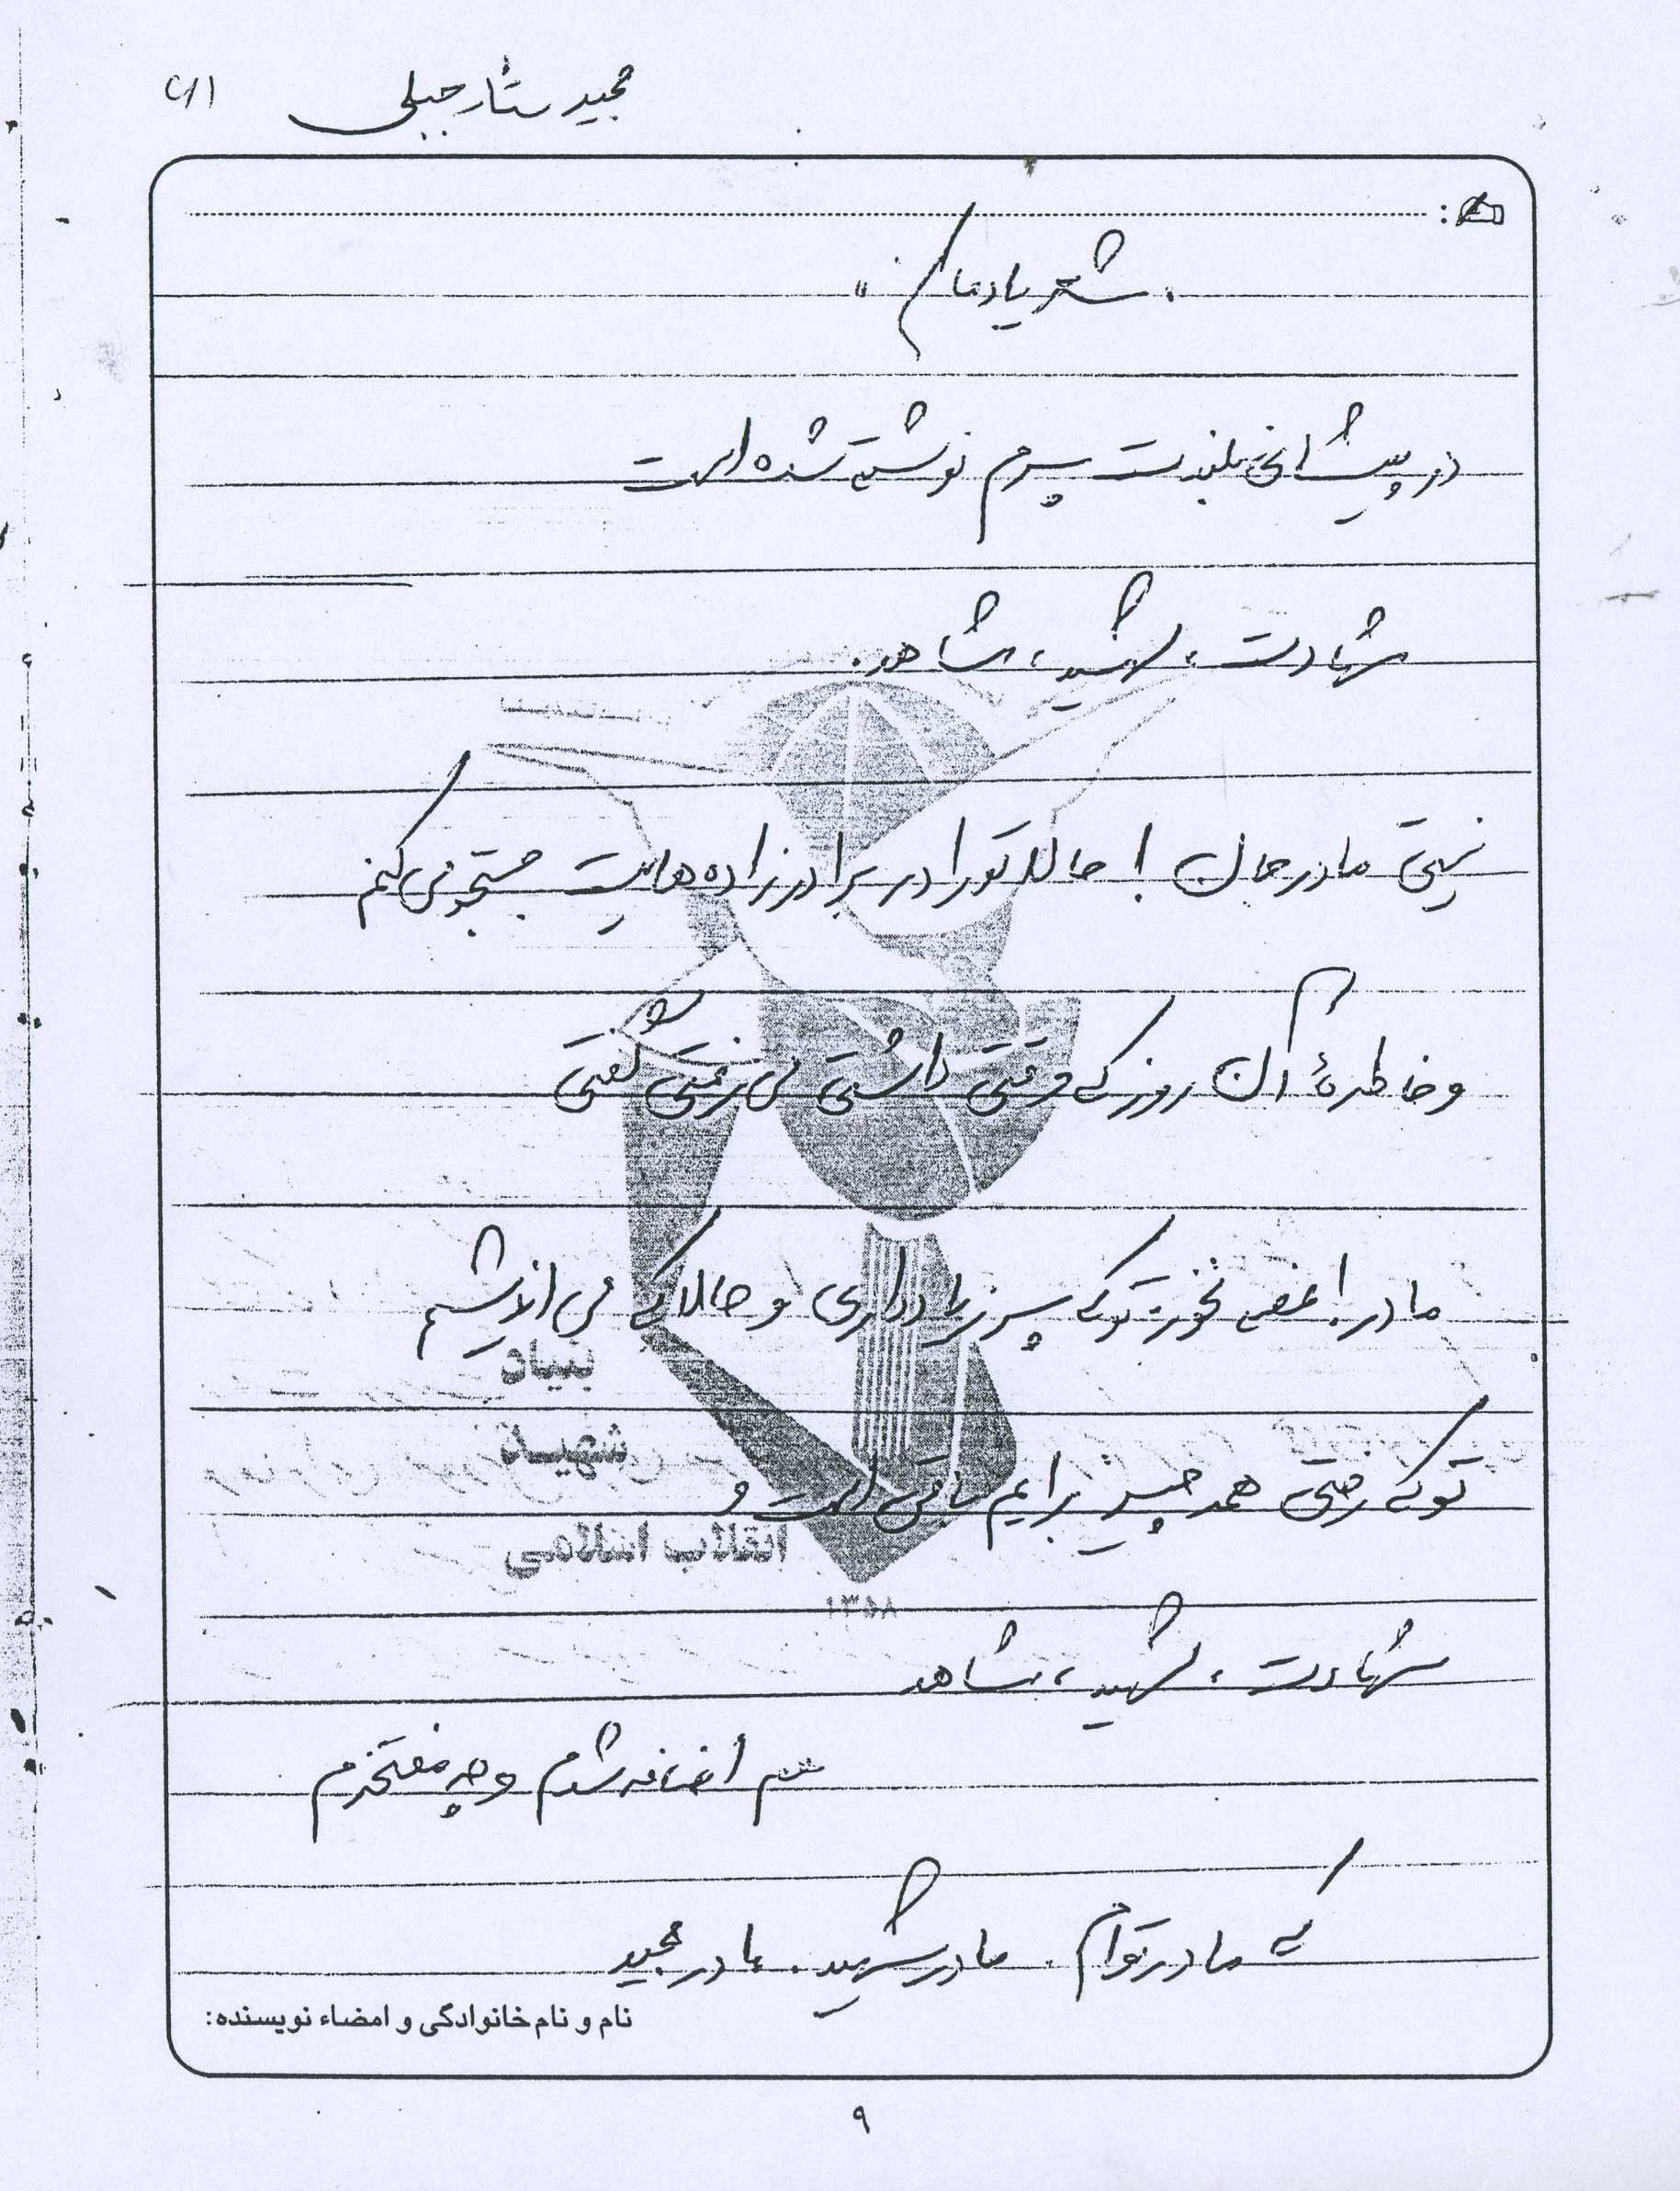 مجید ستار جبلی
" شعر یادمان "
در پیشانی بلندت پسرم نوشته شده است
شهادت ، شهید ، شاهد .
نیستی مادر جان ! حالا تو را در برادرزاده هایت جستجو می کنم
و خاطرهٔ آن روز که وقتی داشتی می رفتی گفتی
مادر ! غصه نخور تو که پسر زیاد داری و حالا که می اندیشم
تو که رفتی همه چیز برایم باقی است و
شهادت ، شهید ، شاهد
هم اضافه شدم و چه مفتخرم
که مادر توام . مادر شهید . مادر مجید
نام و نام خانوادگی و امضاء نویسنده:
۹
بنیاد
شهید
انقلاب اسلامی
۱۳۵۸